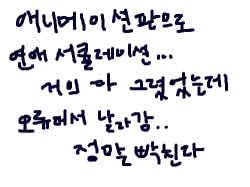 애니메이션판으로
연애 서큘레이션...
거의 다 그렸었는데
오류머서 날라감..
정말 빡친다